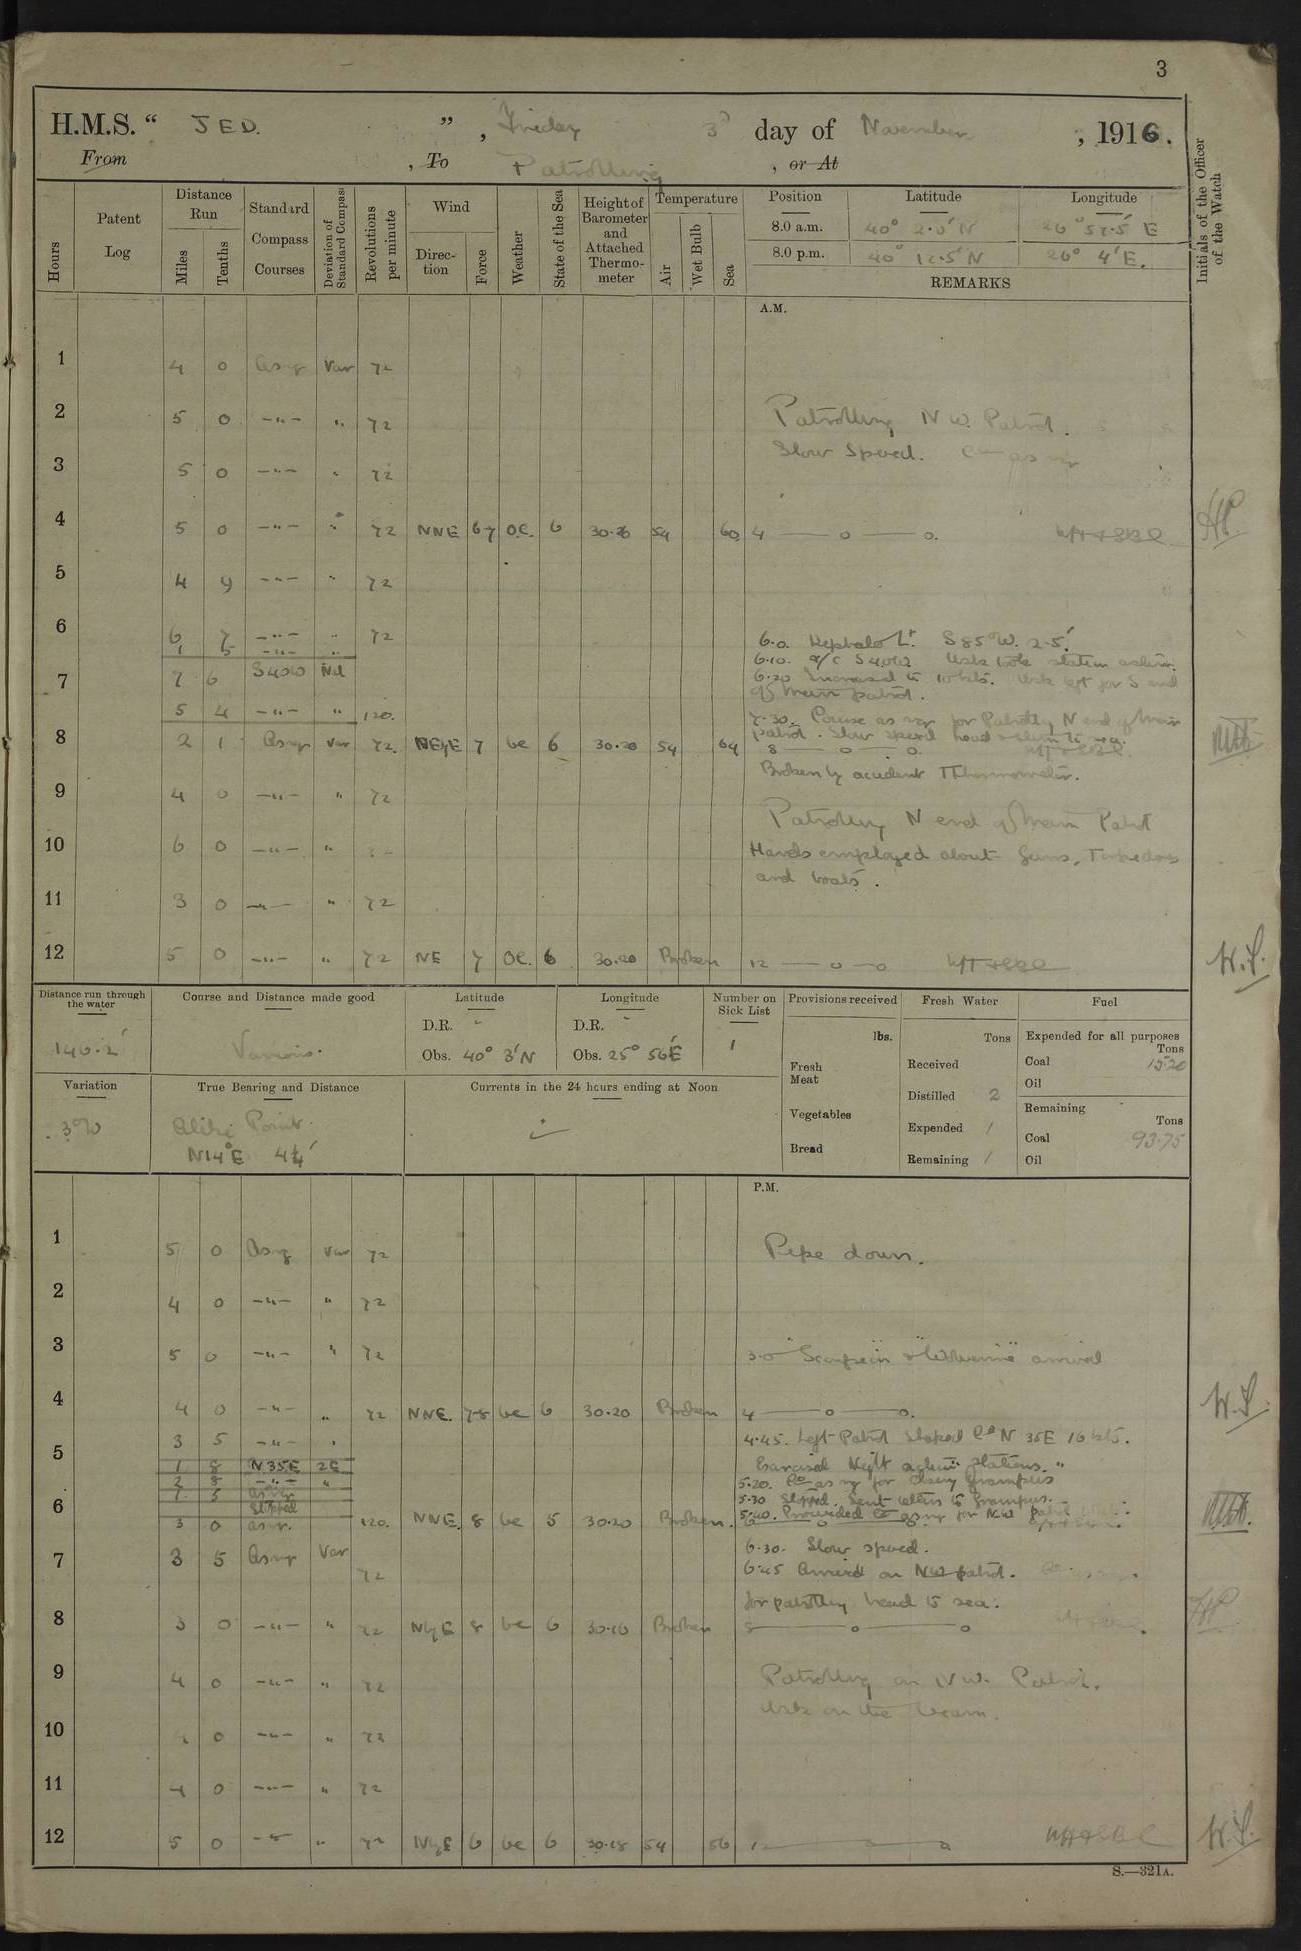 3
H.M.S. “ JED. ” , Friday 3d day of November , 1916.
From , To Patrolling , or At
Hours
Patent Log
Distance Run
Miles
Tenths
Standard Compass Courses
Deviation of Standard Compass
Revolutions per minute
Wind
Direction
Force
Weather
State of the Sea
Height of Barometer and Attached Thermometer
Temperature
Air
Wet Bulb
Sea
Position Latitude Longitude
8.0 a.m. 40° 2·5' N E
8.0 p.m. 40° 12·5' N 26° 4' E.
REMARKS
Initials of the Officer of the Watch
A.M.
1 4 0 Asrq Var 72
2 5 0 —"— " 72 Patrolling N W. Patrol.
3 5 0 —"— " 72 Slow Speed.
4 5 0 —"— " 72 NNE 6-7 O.C. 6 30·26 54 60 4 —— o —— o.
5 4 9 —"— " 72
6 6 7 —"— " 72 6.0. Kephalo Lt. S 85° W. 2·5'
1 5 —"— " 6·10. a/c S40W Usk took station astern.
7 7 6 S40W Nil 6·20 Increased to 10 kts. Usk left for S end
of Main patrol.
5 4 —"— " 120. 7·30. Course as req for Patrolling N end of Main
patrol. Slow speed head & stern to sea.
8 2 1 Asrq Var 72. NEbyE 7 bc 6 30·20 54 64 8 —— o —— o.
Broken by accident Thermometer.
9 4 0 —"— " 72
Patrolling N end of Main Patrol
10 6 0 —"— " Hands employed about Guns, Torpedoes
and boats.
11 3 0 —"— " 72
12 5 0 —"— " 72 NE 7 OC. 6 30.20 Broken 12 —— o — o W.S.
Distance run through the water
146·2'
Course and Distance made good
Various.
Latitude
D.R. -
Obs. 40° 3' N
Longitude
D.R. -
Obs. 25° 56' E
Number on Sick List
1
Provisions received
lbs.
Fresh Meat
Vegetables
Bread
Fresh Water
Tons
Received
Distilled 2
Expended /
Remaining /
Fuel
Expended for all purposes
Tons
Coal 15·20
Oil
Remaining
Tons
Coal 93·75
Oil
Variation
3°W
True Bearing and Distance
Point.
N14°E 4¼'
Currents in the 24 hours ending at Noon
P.M.
1 5 0 Asrq Var 72 Pipe down.
2 4 0 —"— " 72
3 5 0 —"— " 72 3·0 "Scorpion" & "Wolverine" arrived
4 4 0 —"— " 72 NNE. 7-8 bc 6 30·20 Broken 4 —— o —— o. W.S.
3 5 —"— " 4·45. Left Patrol Shaped Co N 35E 16 kts.
5 1 8 N 35E 2E Exercised Night action stations.
2 8 —"— " 5·20. Co as req for closing Grampus
1 5 asrq 5·30 Stopped. Sent letters to Grampus.
Stopped 5·40. Proceeded Co as req for NW patrol
6 3 0 asrq. 120. NNE. 8 bc 5 30·20 Broken.
7 3 5 Asrq Var 72 6·30. Slow speed.
6·45 Arrived on NW patrol.
for patrolling head to sea.
8 3 0 —"— " 72 NbyE 8 bc 6 30·16 Broken 8 —— o —— o
9 4 0 —"— " 72 Patrolling on N W. Patrol.
Usk on the beam.
10 0 —"— " 72
11 4 0 —"— " 72
12 5 0 —"— " 72 NbyE 6 bc 6 30·18 54 56 12 —— o —— o W.S.
S.—321A.